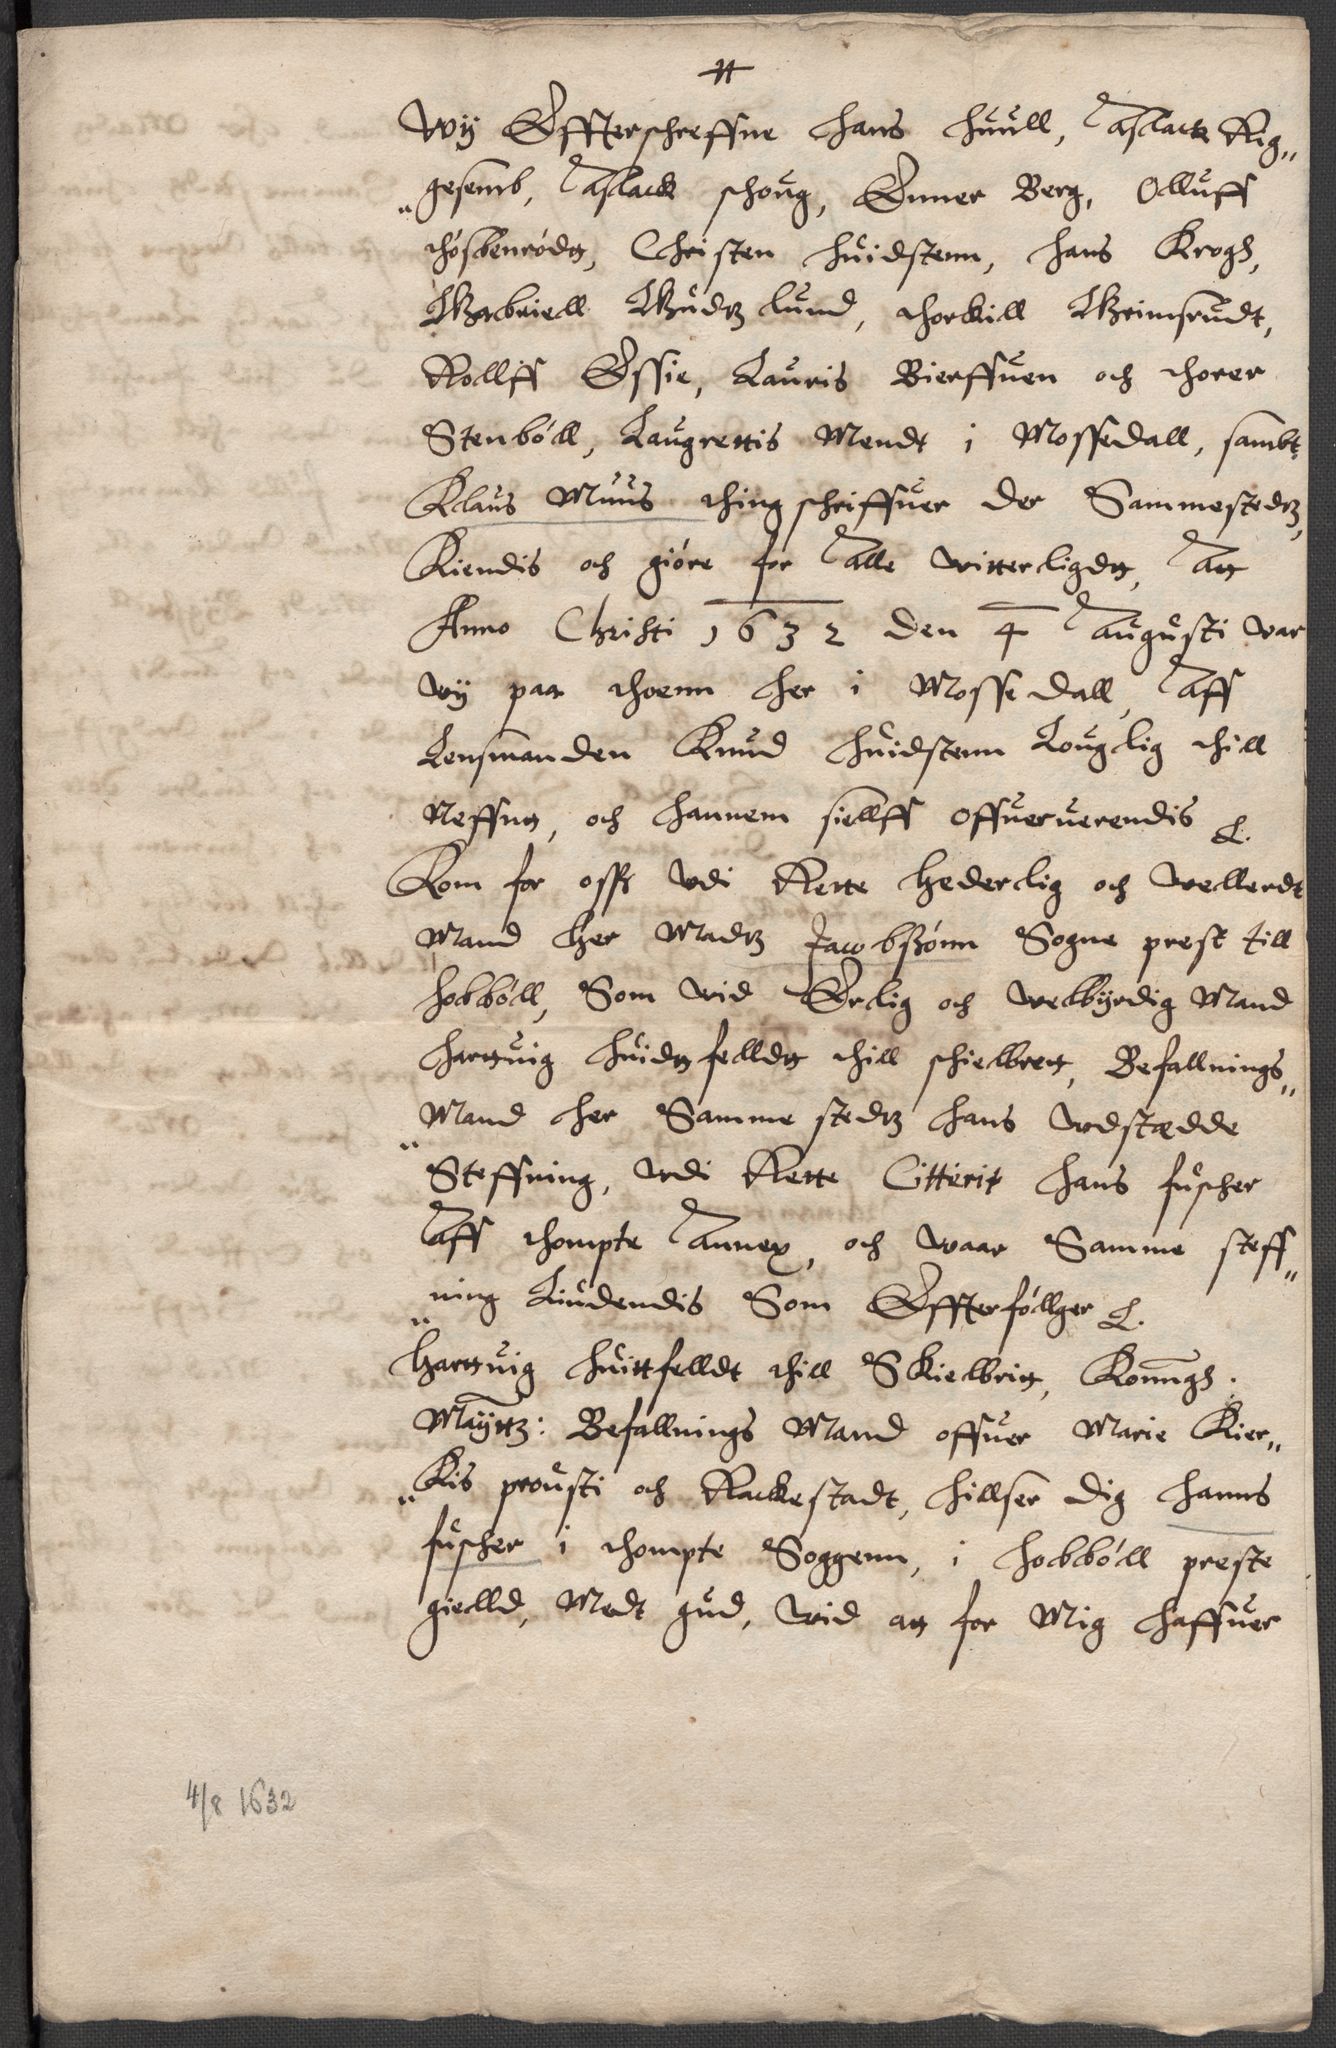 Wij Effterschreffne Hans Huull, Aslack Rig„
„gesemb, Aslack Schoug, Enner Berg, Olluff
Thösbenrödt, Christen Huidstenn, Hans Krogh,
Gabriell Gudtz Lund, Thorkill Grimsrudt,
Rolliff Essie, Lauris Bierffuen och Thorer
Stenböll, Laugrettis Mendt i Mossedall, sambt
Klaus Muus Thing schriffuer der Sammestedtz,
Kiendis och giöre for alle witterligdt, att
Anno Christi 1632 den 4 Augusti war
wij paa Thoenn her i Mossedall, aff
Lensmanden Knud Huidstenn Louglig thill
Neffnt, och hannem siellff offueruerendis &.
Kom for osss vdi Rette Hederlig och vellerdt
Mand Her Madtz Jacobssönn Sogne prest till
Hobböll, Som wid Erlig och velbÿrdig Mand
Hartuig Huidtfelldt thill schielbret, Befallnings„
„Mand her Samme stedtz hans vdstædde
Steffning, vdi Rette Citterit Hans fuscher
aff Thompte annex, och waar Samme steff„
„ning Liudendis Som Effterföllger &.
Hartuig Huittfelldt thill Skielbrit, Konngh:
Maÿttz: Befallnings Mand offuer Marie Kier„
„Kis prousti och Rackestadt, hillser dig Hanns
fuscher i Thompte Soggenn, i Hobböll preste
gielld, Medt gud, wid at for Mig haffuer
4/8 1632